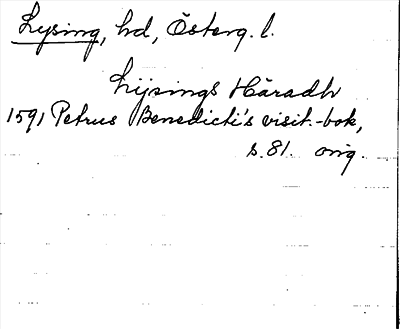 Lysing, hd, Österg. l.
Lijsings Häradh
1591 Petrus Benedicti's visit.-bok,
s. 81. orig.